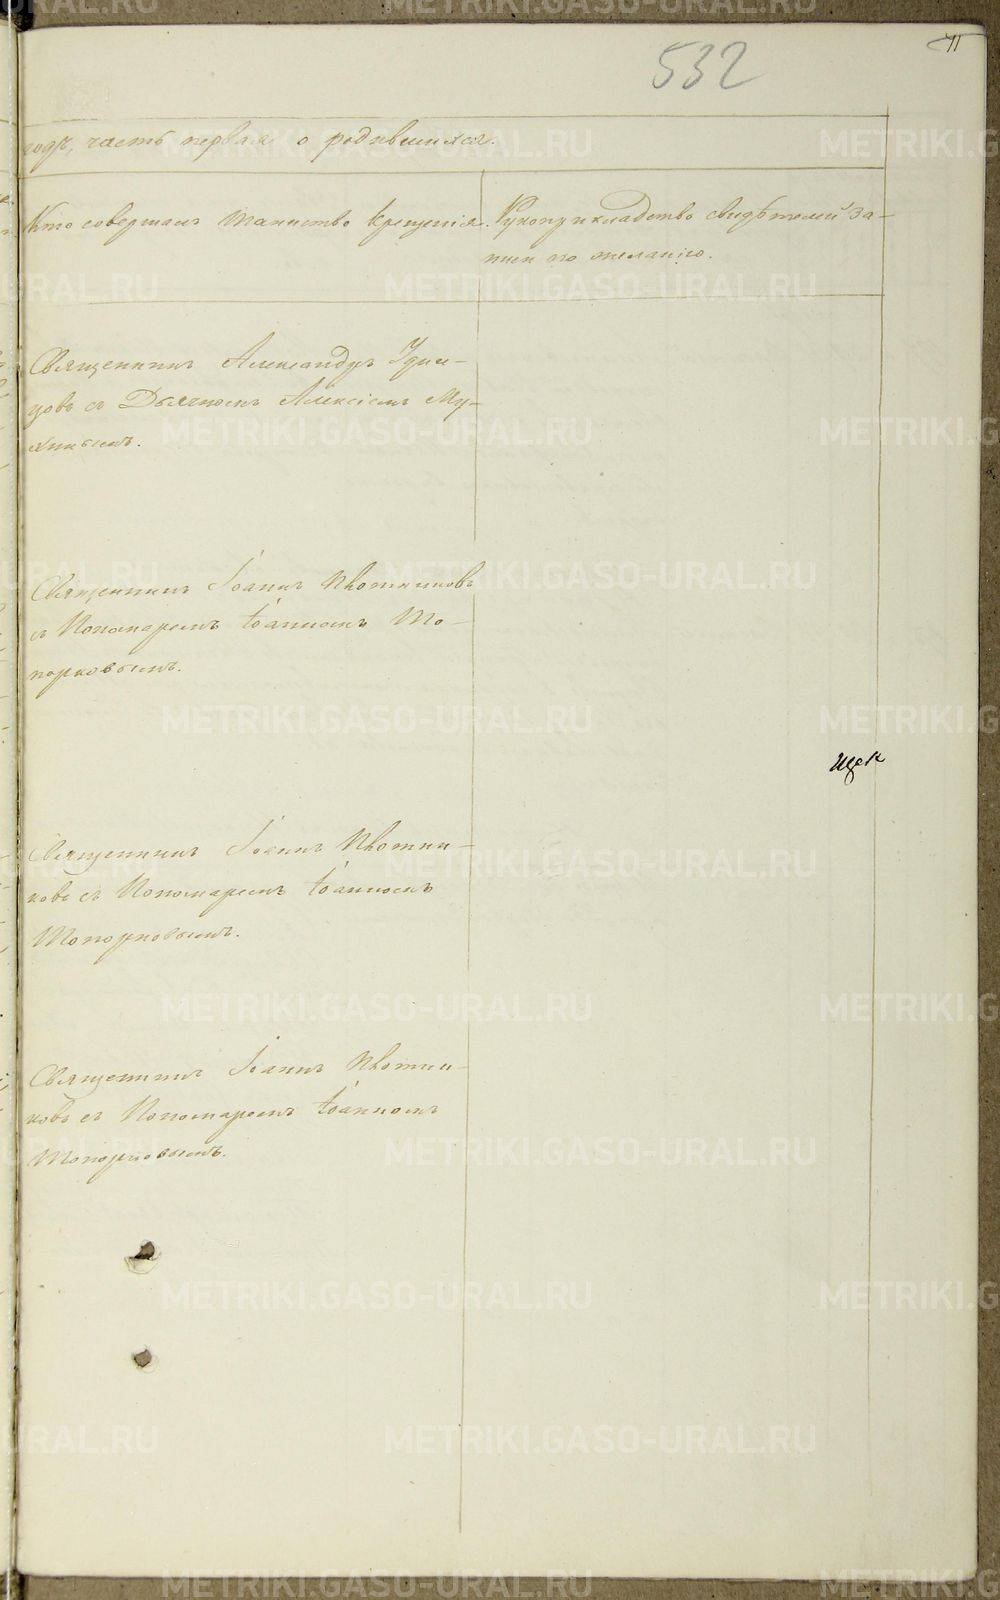 532
11
годъ, часть первая о родившихся.
Кто совершалъ таинство крещенія.
Рукоприкладство свидѣтелей за-
писи по желанію.
Священникъ Александръ Удин-
цовъ съ Дьячкомъ Алексіемъ Му-
хинымъ.
Священникъ Іоаннъ Плотниковъ
съ Пономаремъ Іоанномъ То-
порковымъ.
Щек
Священникъ Іоаннъ Плотни-
ковъ съ Пономаремъ Іоанномъ
Топорковымъ.
Священникъ Іоаннъ Плотни-
ковъ съ Пономаремъ Іоанномъ
Топорковымъ.
METRIKI.GASO-URAL.RU